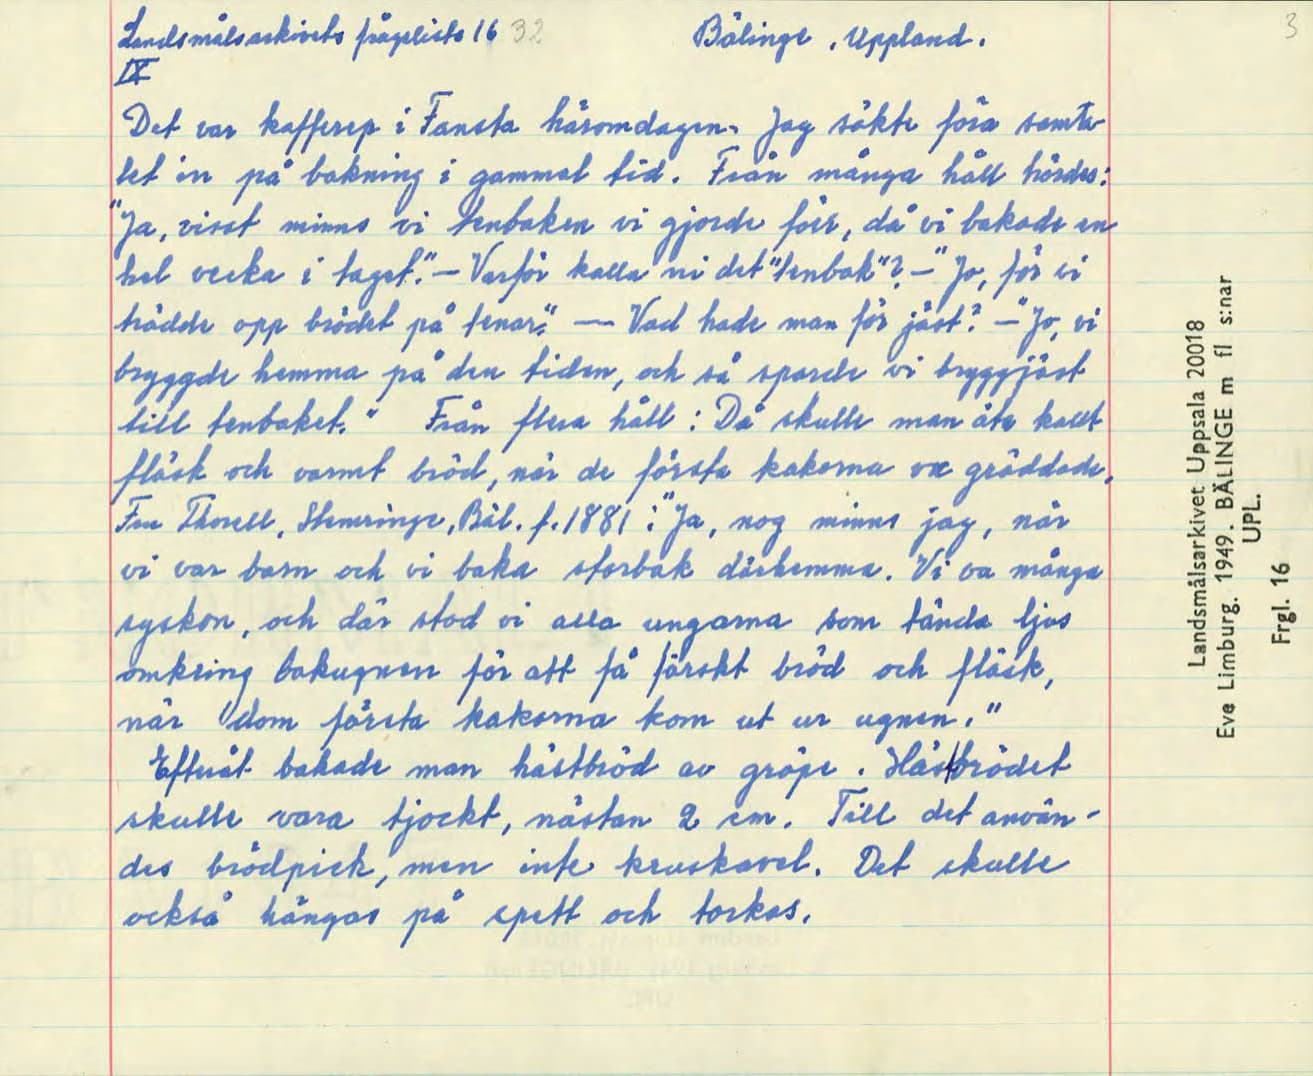 Landsmålsarkivets frågelista 16 32 Bälinge, Uppland. 3
IX
Det var kafferep i Fansta häromdagen. Jag sökte föra samta
let in på bakning i gammal tid. Från många håll hördes:
"Ja, visst minns vi tenbaken vi gjorde förr, då vi bakade en
hel vecka i taget." — Varför kalla ni det "tenbak"? — "Jo, för vi
trädde opp brödet på tenar." — Vad hade man för jäst? — "Jo, vi
bryggde hemma på den tiden, och så sparde vi bryggjäst
till tenbaket." Från flera håll: Då skulle man äta kallt
fläsk och varmt bröd, när de första kakorna va gräddade.
Fru Thorell, Skemringe, Bäl. f. 1881: "Ja, nog minns jag, när
vi var barn och vi baka storbak därhemma. Vi va många
syskon, och där stod vi alla ungarna som tända ljus
omkring bakugnen för att få färskt bröd och fläsk,
när dom första kakorna kom ut ur ugnen."
Efteråt bakade man hästbröd av gröpe. Hästbrödet
skulle vara tjockt, nästan 2 cm. Till det använ-
des brödpick, men inte kruskavel. Det skulle
också hängas på spett och torkas.
Landsmålsarkivet Uppsala 20018
Eva Limburg. 1949. BÄLINGE m fl s:nar
UPL.
Frgl. 16